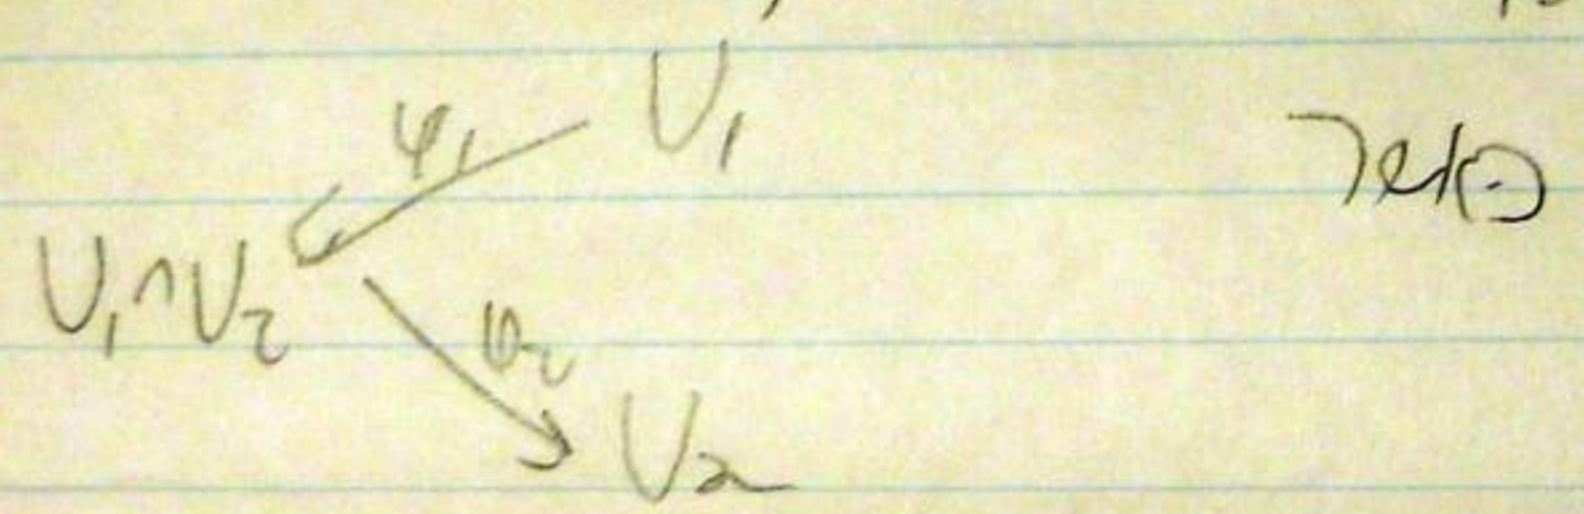 φ₁ U₁
U₁∩U₂
φ₂
U₂